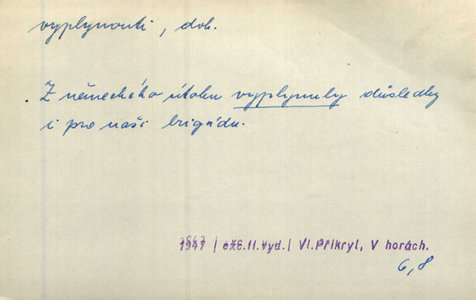 vyplynouti, dok.
Z německého útoku vyplynuly důsledky
i pro naši brigádu.
1947 / exc.II.vyd./ Vl.Přikryl, V horách.
6,8